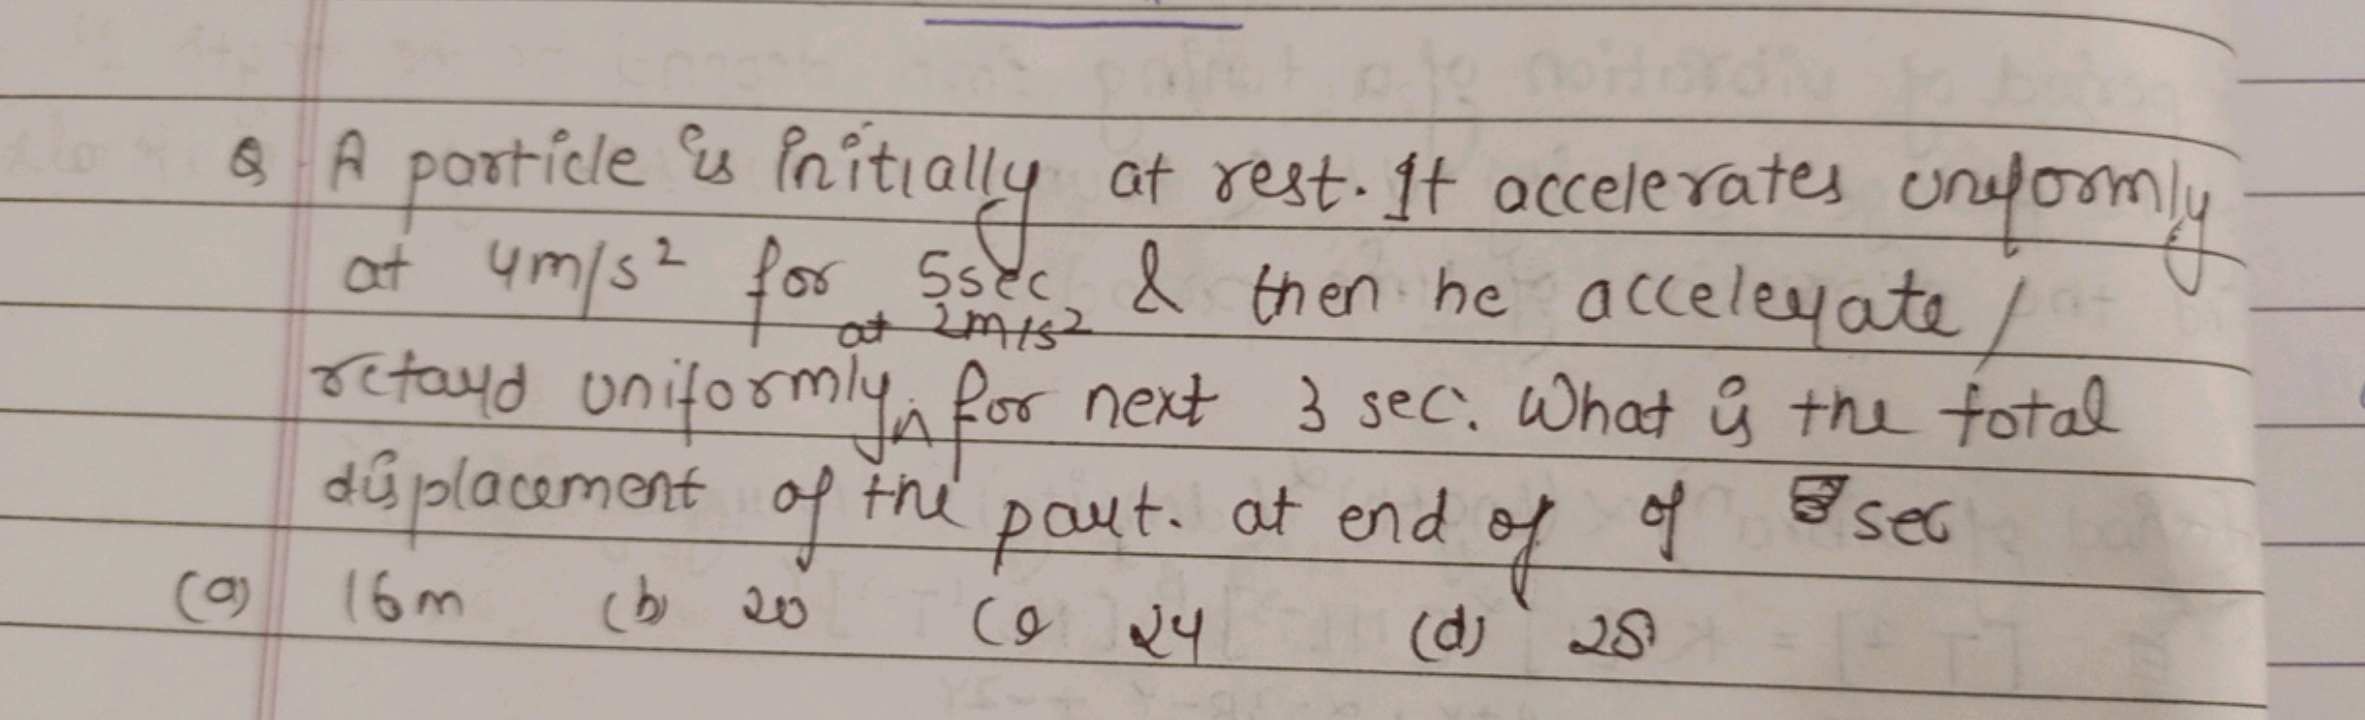 Q A particle is initially at rest. It accelerates uniformly
at 4m/s² for 5sec & then he accelerate /
at 2m/s²
retard uniformly, for next 3 sec. What is the total
displacement of the part. at end of of sec
(a) 16m (b) 20 (c) 24 (d) 28